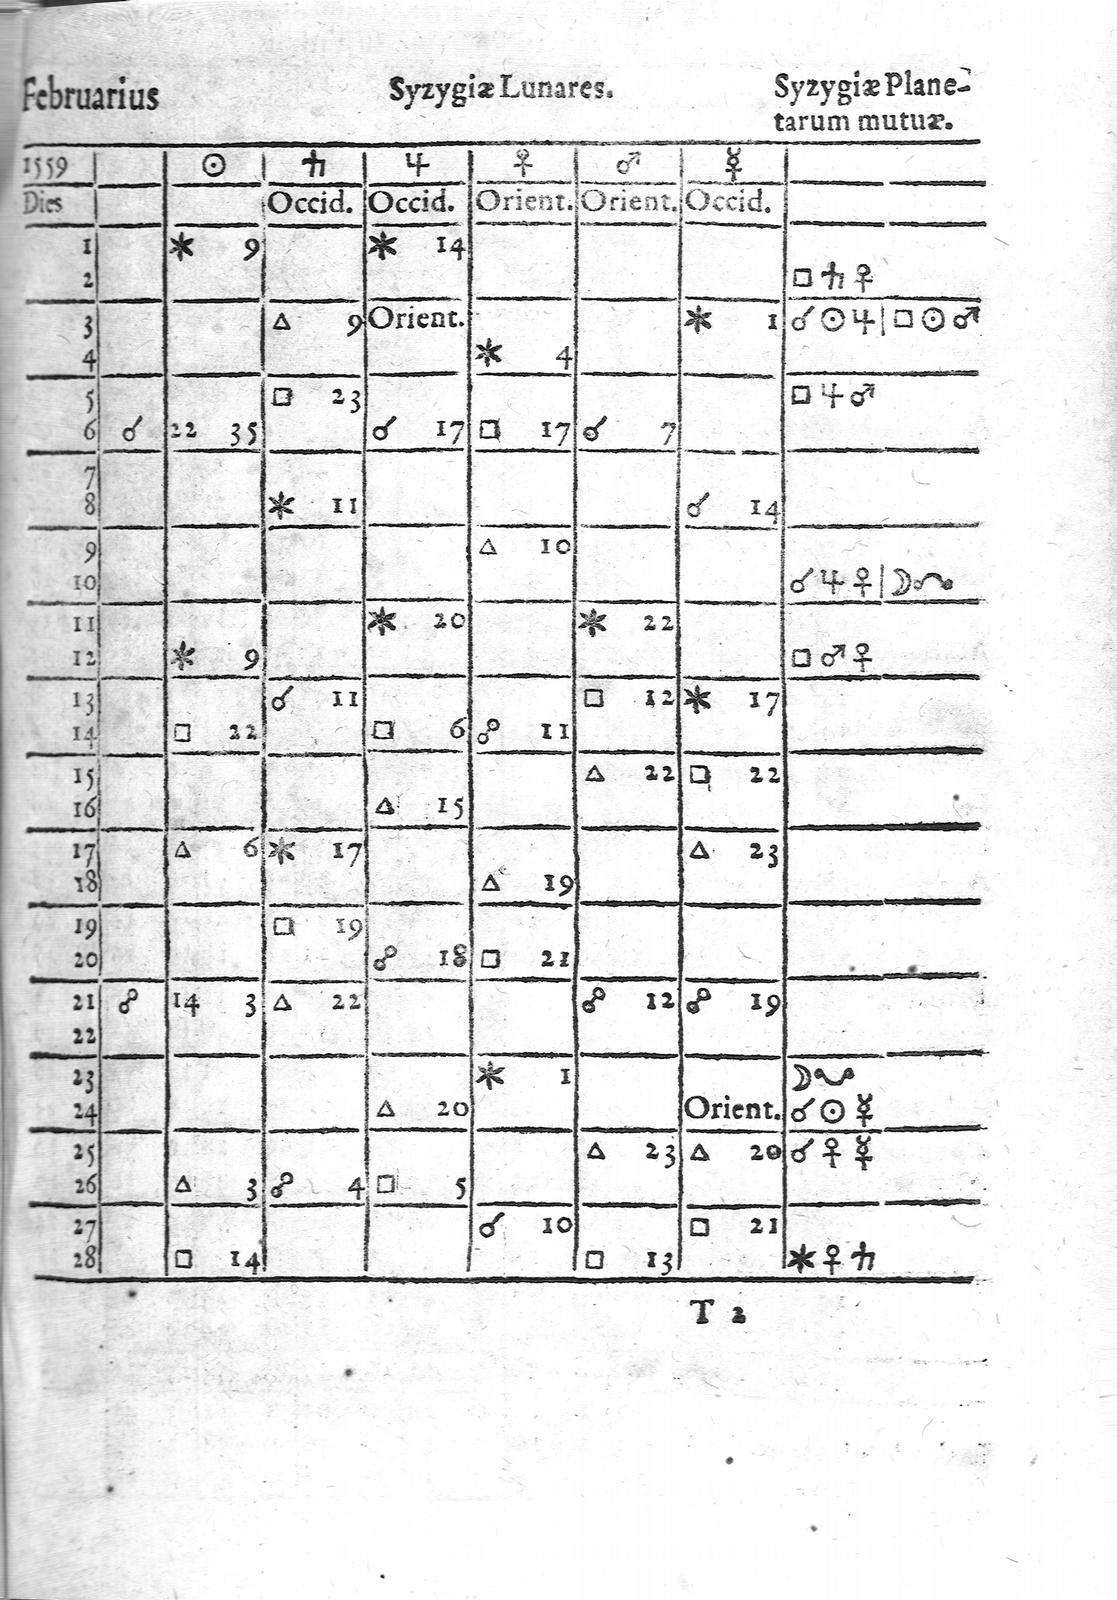 Februarius Syzygiæ Lunares. Syzygiæ Plane-
tarum mutuæ.
1559 ☉ ♄ ♃ ♀ ♂ ☿
Dies Occid. Occid. Orient. Orient. Occid.
1 ⚹ 9 ⚹ 14
2 □ ♄ ♀
3 △ 9 Orient. ⚹ 1 ☌ ☉ ♃ | □ ☉ ♂
4 ⚹ 4
5 □ 23 □ ♃ ♂
6 ☌ 22 35 ☌ 17 □ 17 ☌ 7
7
8 ⚹ 11 ☌ 14
9 △ 10
10 ☌ ♃ ♀ | ☽ ☊
11 ⚹ 20 ⚹ 22
12 ⚹ 9 □ ♂ ♀
13 ☌ 11 □ 12 ⚹ 17
14 □ 22 □ 6 ☍ 11
15 △ 22 □ 22
16 △ 15
17 △ 6 ⚹ 17 △ 23
18 △ 19
19 □ 19
20 ☍ 18 □ 21
21 ☍ 14 3 △ 22 ☍ 12 ☍ 19
22
23 ⚹ 1 ☽ ☋
24 △ 20 Orient. ☌ ☉ ☿
25 △ 23 △ 20 ☌ ♀ ☿
26 △ 3 ☍ 4 □ 5
27 ☌ 10 □ 21
28 □ 14 □ 13 ⚹ ♀ ♄
T 2